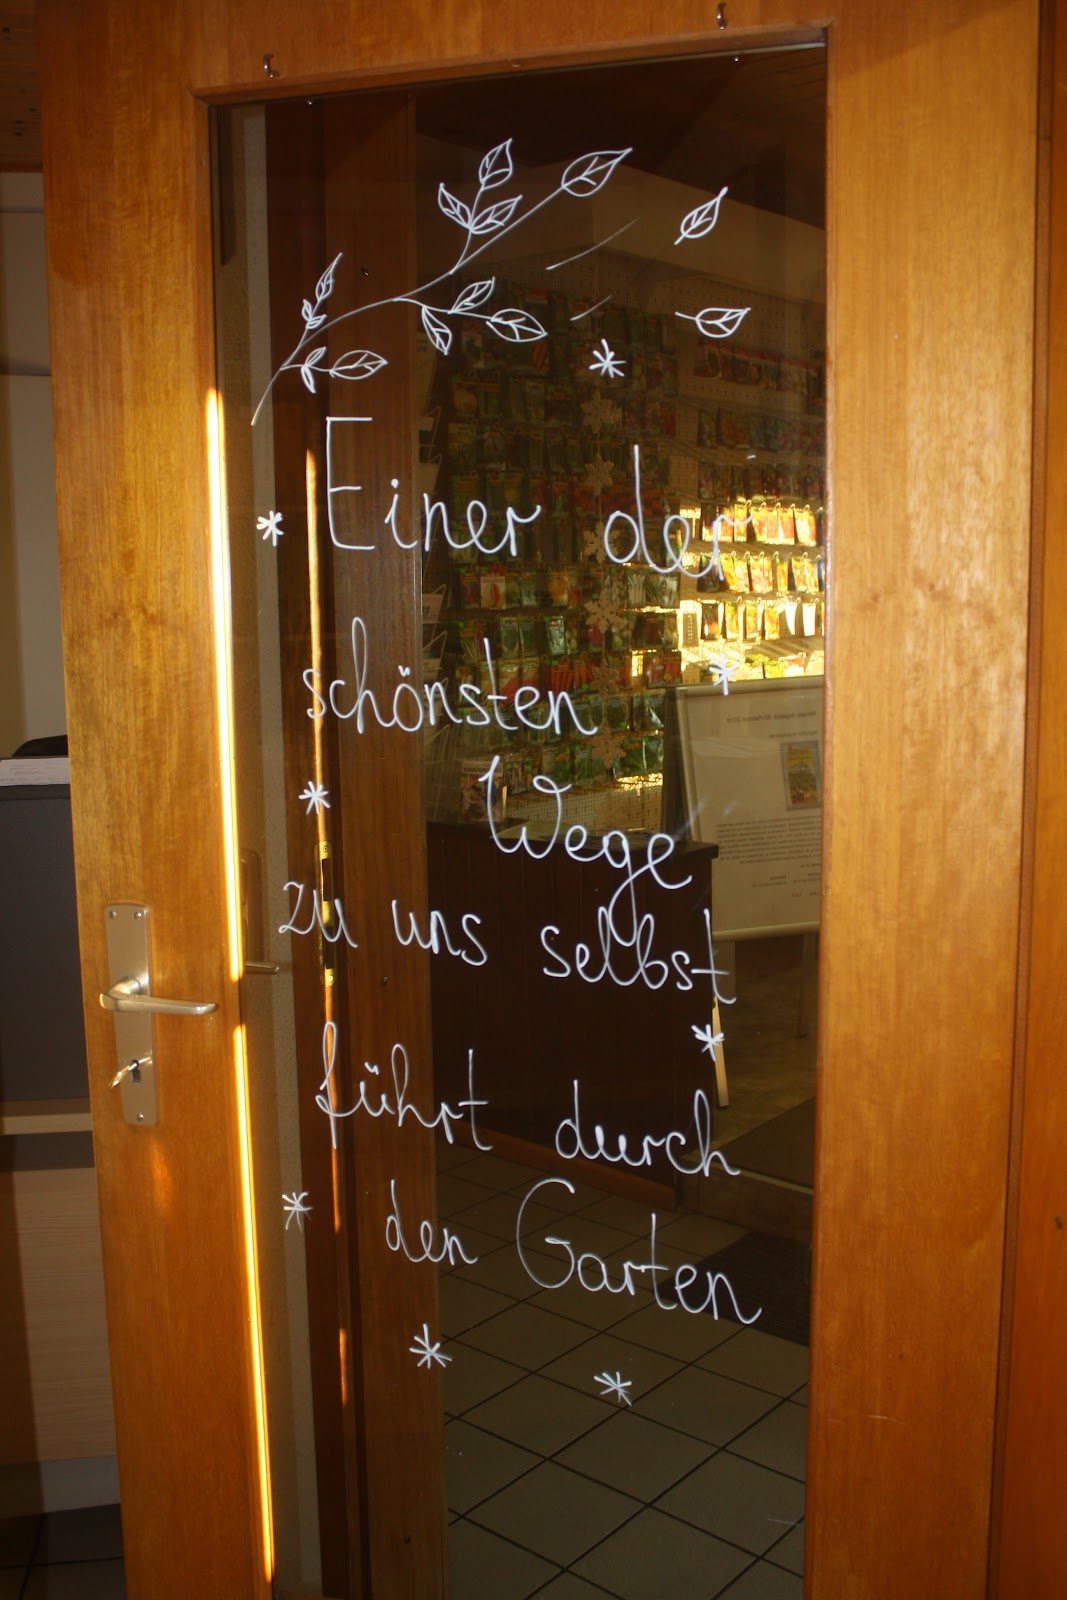 Einer der
schönsten
Wege
zu uns selbst
führt durch
den Garten